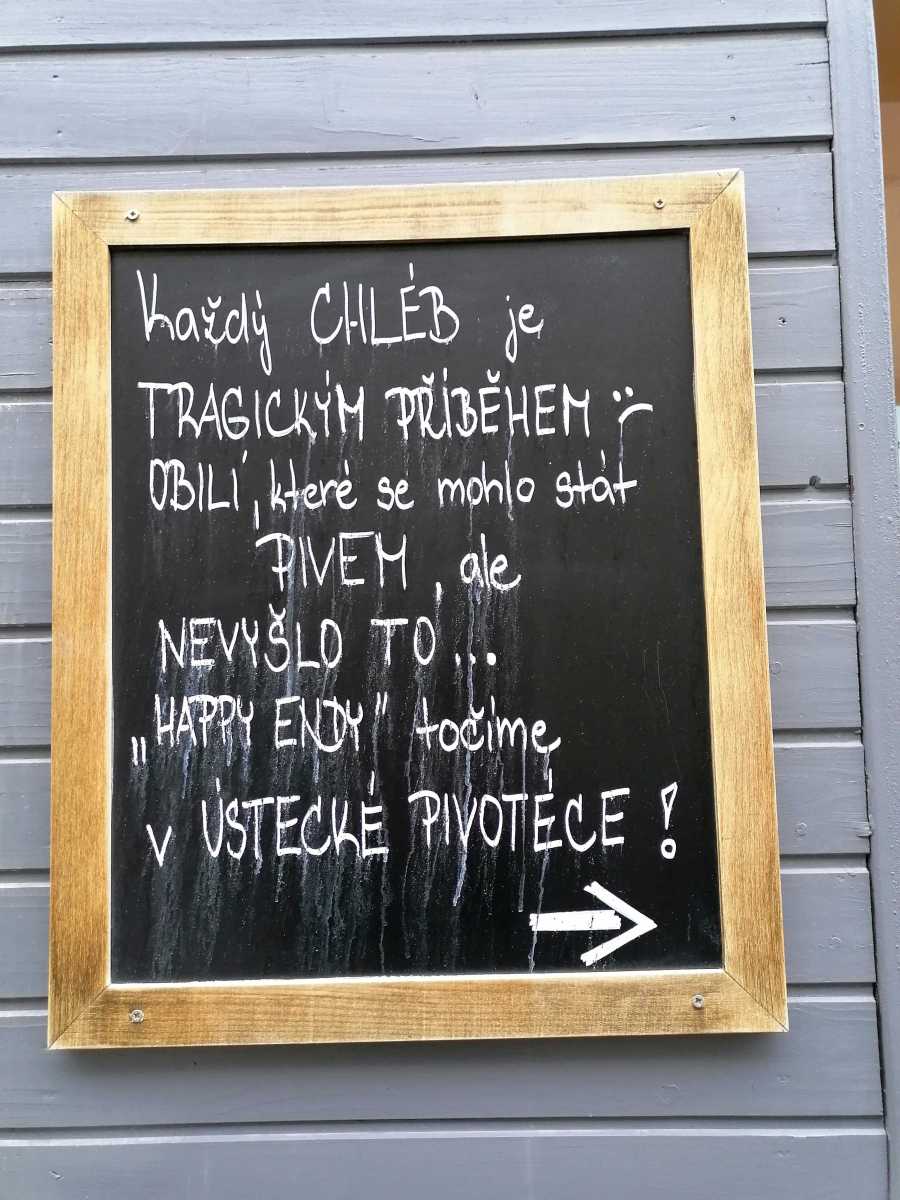 Každý CHLÉB je
TRAGICKÝM PŘÍBĚHEM :(
OBILÍ, které se mohlo stát
PIVEM, ale
NEVYŠLO TO...
„HAPPY ENDY" točíme
v ÚSTECKÉ PIVOTÉCE!